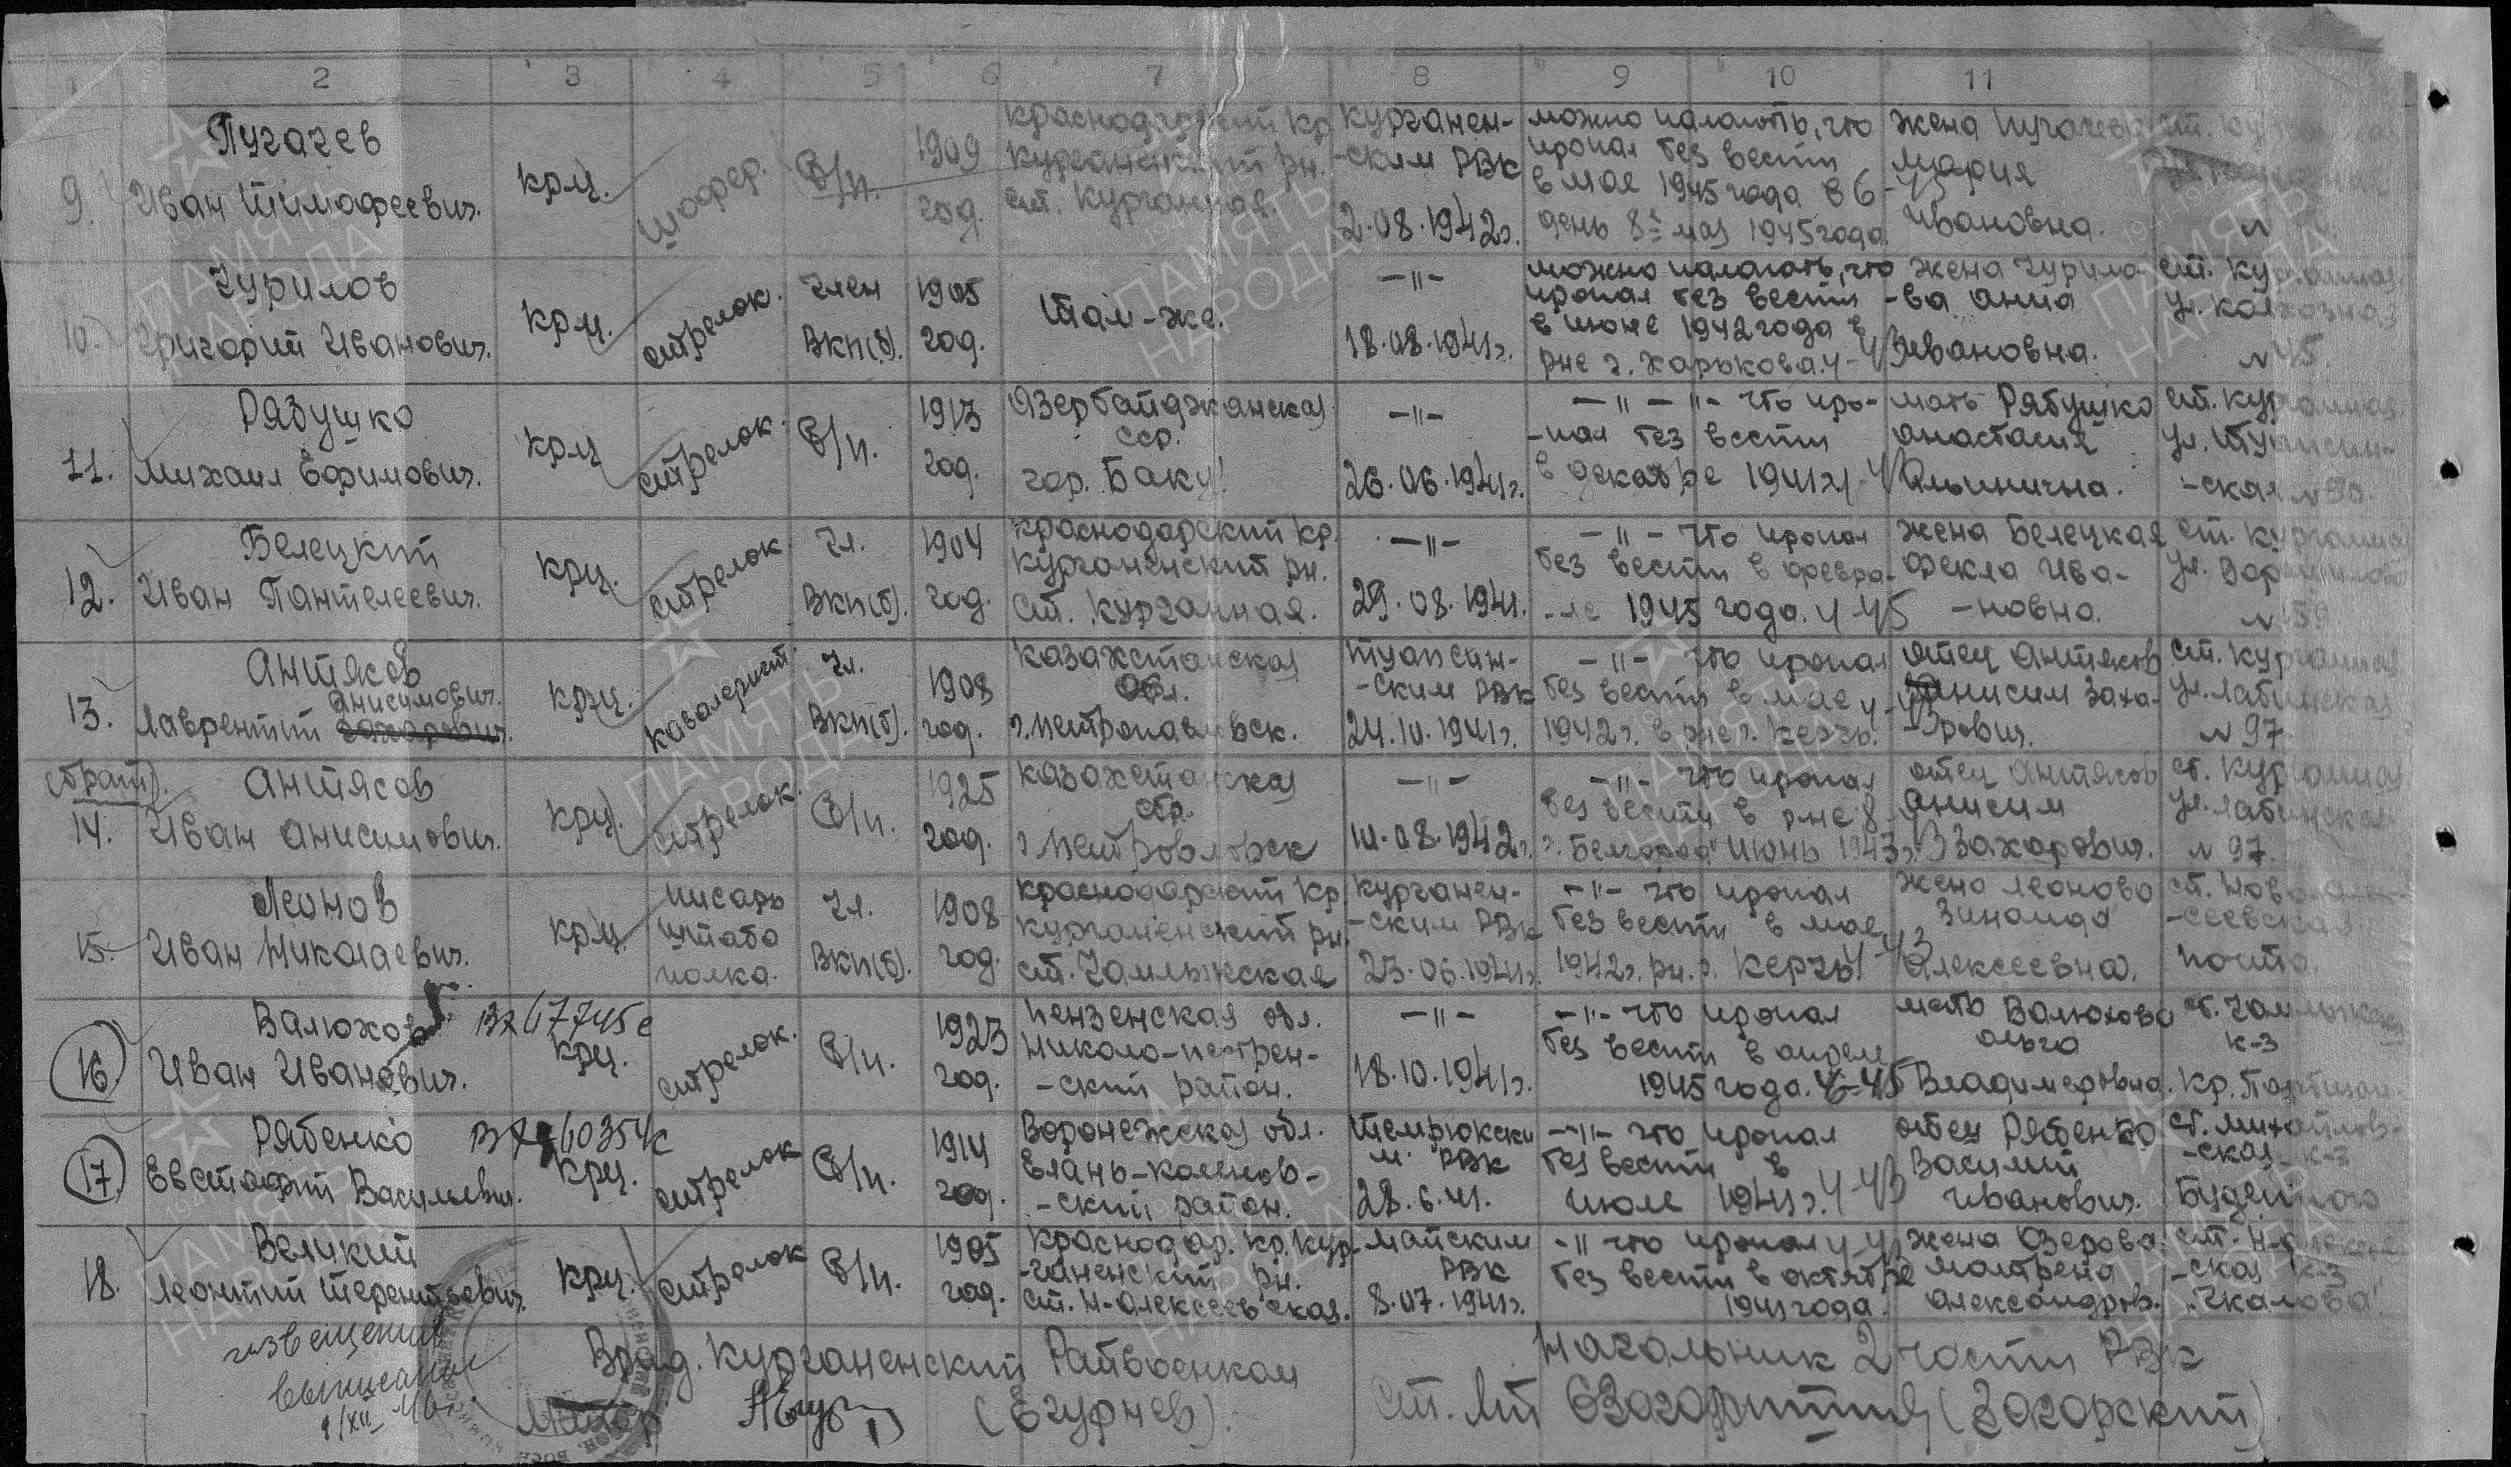 1 2 3 4 5 6 7 8 9 10 11
9. Пугачев Иван Тимофеевич.
крц.
шофер.
б/п.
1909 год.
Краснодарский кр. Курганенский рн. ст. Курганная.
Курганен-
-ским РВК
2.08.1942г.
можно пологоть, что
пропал без вести
в мае 1945 года
день 8 мая 1945 года
жена Пугачева
Мария
Ивановна.
10. Чурилов
Григорий Иванович.
крц.
стрелок.
член
ВКП(б).
1905
год.
Там-же.
-"-
18.08.1941г.
можно пологоть, что
пропал без вести
в июне 1942 года в
рне г. Харькова. 4-43
жена Чурило-
-ва Анна
Ивановна.
ст. Курганная
ул. Колхозная
№ 45
11. Рябушко
Михаил Ефимович.
крц
стрелок.
б/п.
1913
год.
Азербайджанская
сср.
гор. Баку.
-"-
26.06.1941г.
-"-"- что про-
-пал без вести
в декабре 1941г.
мать Рябушко
Анастасия
Ильинична.
ст. Курганная
ул. Туапсин-
-ская № 90.
12. Белецкий
Иван Пантелеевич.
крц.
стрелок.
Чл.
ВКП(б).
1904
год.
Краснодарский кр.
Курганенский рн.
ст. Курганная.
-"-
29.08.1941.
-"- что пропал
без вести в февра-
-ле 1945 года. 4-45
жена Белецкая
Фекла Ива-
-новна.
ст. Курганная
13. Антясов
Анисимович.
Лаврентий Захарович.
крц.
кавалерист.
Чл.
ВКП(б).
1908
год.
Казахстанская
обл.
г. Петропавловск.
Туапсин-
-ским РВК
24.10.1941г.
-"- что пропал
без вести в мае
1942г. в рне г. Керчь.
отец Антясов
Анисим Заха-
-рович.
ст. Курганная
ул. Лабинская
№ 97
(брат).
14. Антясов
Иван Анисимович.
крц.
стрелок.
б/п.
1925
год.
Казахстанская
сср.
-"-
10.08.1942г.
-"- что пропал
без вести в рне
г. Белгород июнь 1943г.
отец Антясов
Анисим
Захарович.
ст. Курганная
ул. Лабинская
№ 97.
15. Леонов
Иван Николаевич.
крц.
писарь
штаба
полка.
Чл.
ВКП(б).
1908
год.
Краснодарский кр.
Курганенский рн.
ст. Чамлыкская
Курганен-
-ским РВК
23.06.1941г.
-"- что пропал
без вести в мае
1942г. рн. г. Керчь 4-43
жена Леонова
Зинаида
Алексеевна.
почта.
16. Валюхов
Иван Иванович.
крц.
стрелок.
б/п.
1923
год.
Пензенская обл.
Николо-пестрен-
-ский район.
-"-
18.10.1941г.
-"- что пропал
без вести в апреле
1945 года.
мать Валюхова
Ольга
Владимеровна.
ст. Чамлыкская
к-з
Кр. Партизан
17. Рябенко
Евстафий Васильевич.
крц.
стрелок
б/п.
1914
год.
Воронежская обл.
Елань-коленов-
-ский район.
Темрюкски
м. РВК
28.6.41.
-"- что пропал
без вести в
июле 1941г. 4-43
отец Рябенко
Василий
Иванович.
ст. Михайлов-
-ская к-з
Буденного
18. Великий
Леонтий Терентьевич.
крц.
стрелок
б/п.
1905
год.
Краснодар. кр. Кур-
-ганенский рн.
ст. Н-Алексеевская.
Майским
РВК
8.07.1941г.
-"- что пропал
без вести в октябре
1941 года.
жена Озерова
Матрена
Александров.
-ская к-з
"Чкалова"
извещения
выписаны
9/XII 46.
Врид. Курганенский Райвоенком
Майор
(Егурнев).
Начальник 2 части РВК
ст. Лт (Загорский)
ПАМЯТЬ
НАРОДА